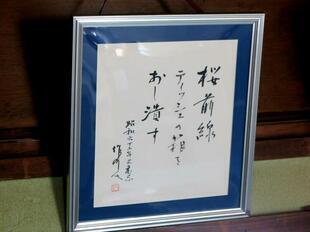 桜前線
ティッシュの箱を
おし潰す
昭和六十